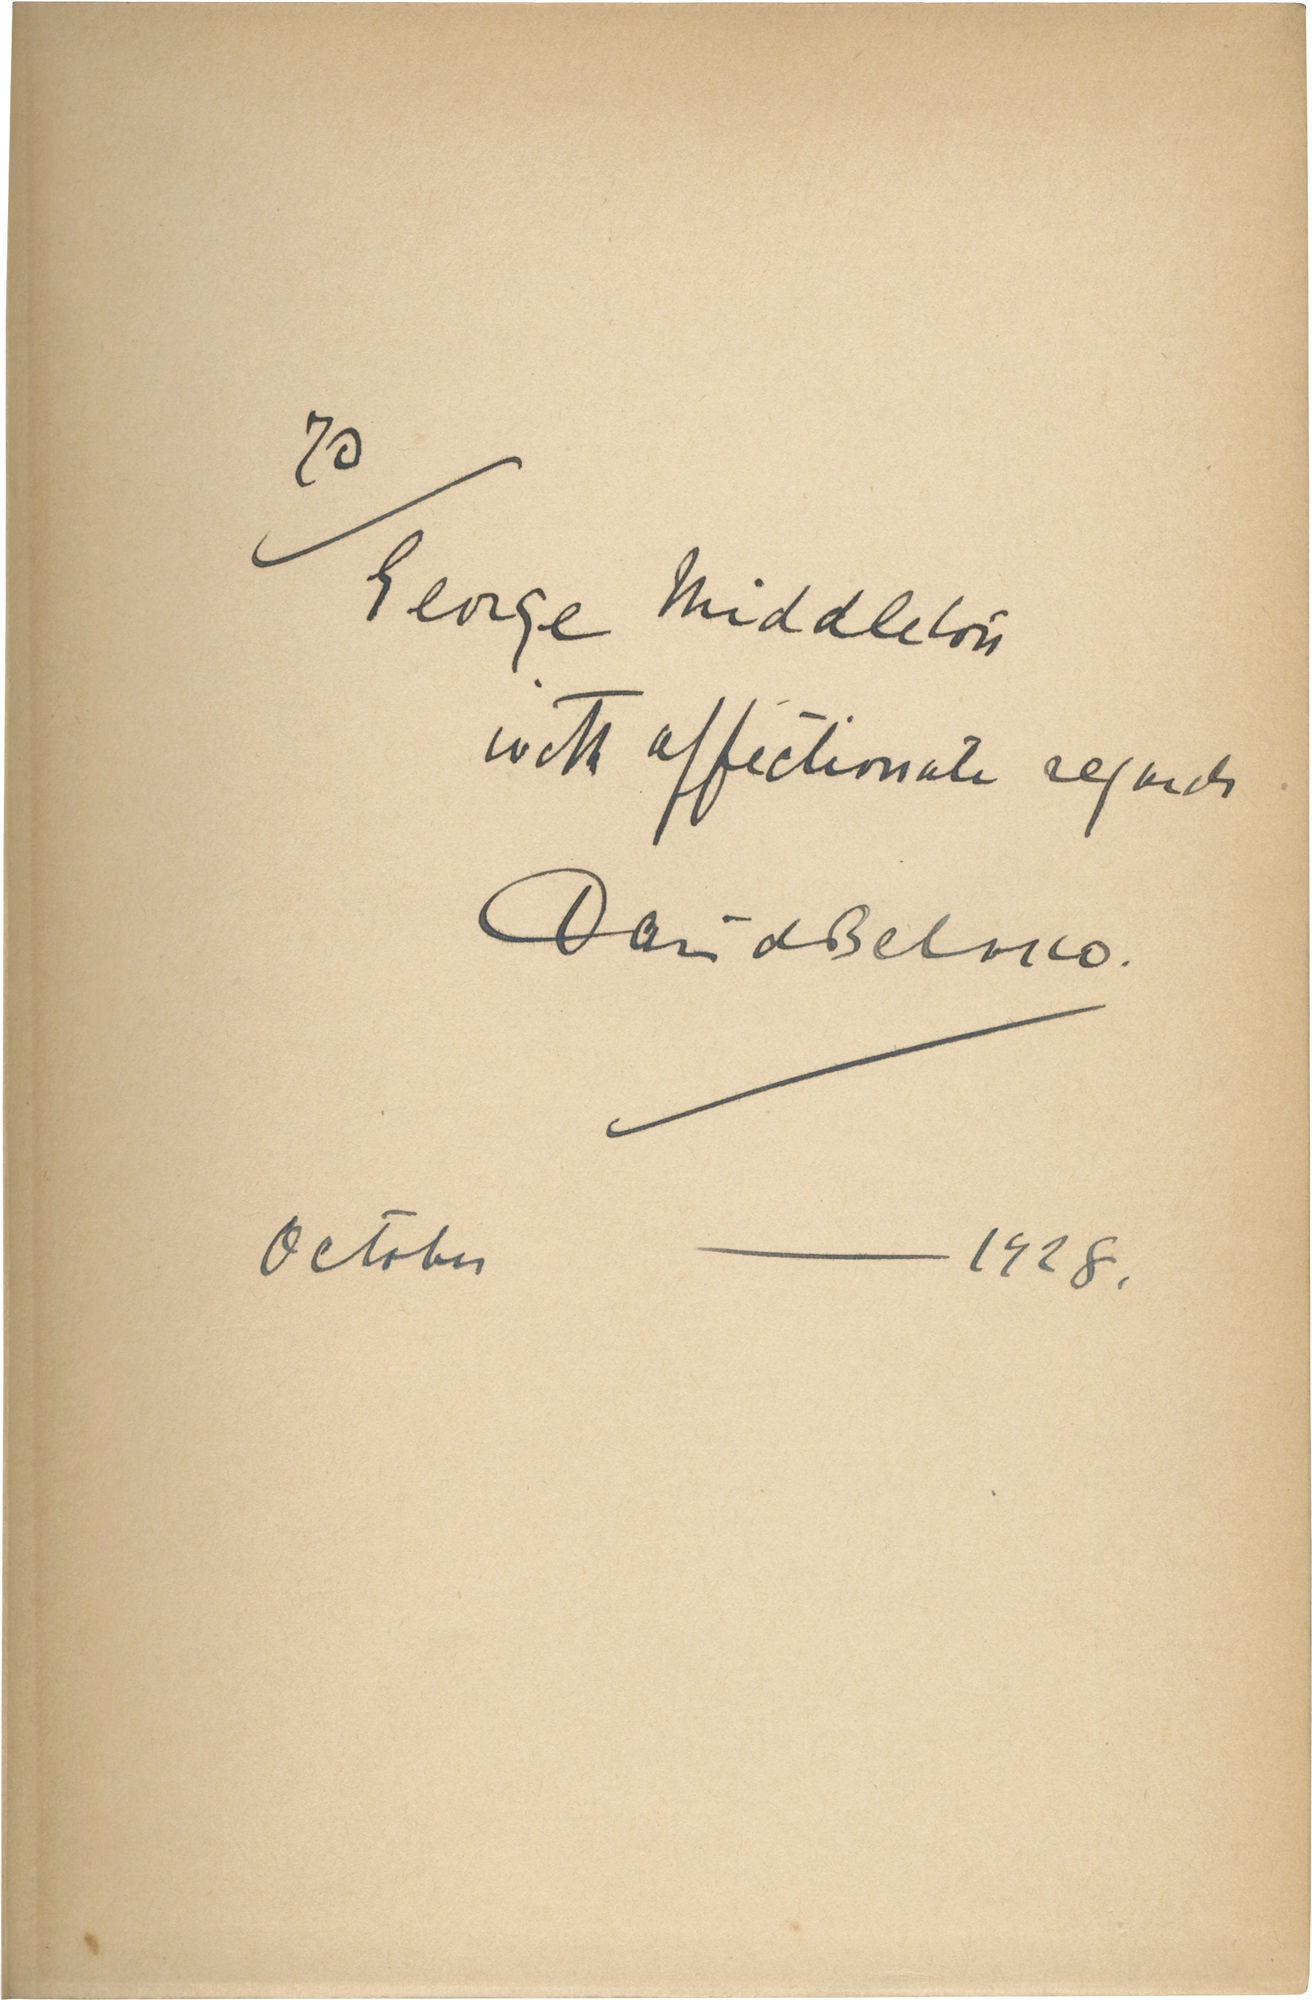 To
George Middleton
with affectionate regards
David Belasco.
October — 1928.